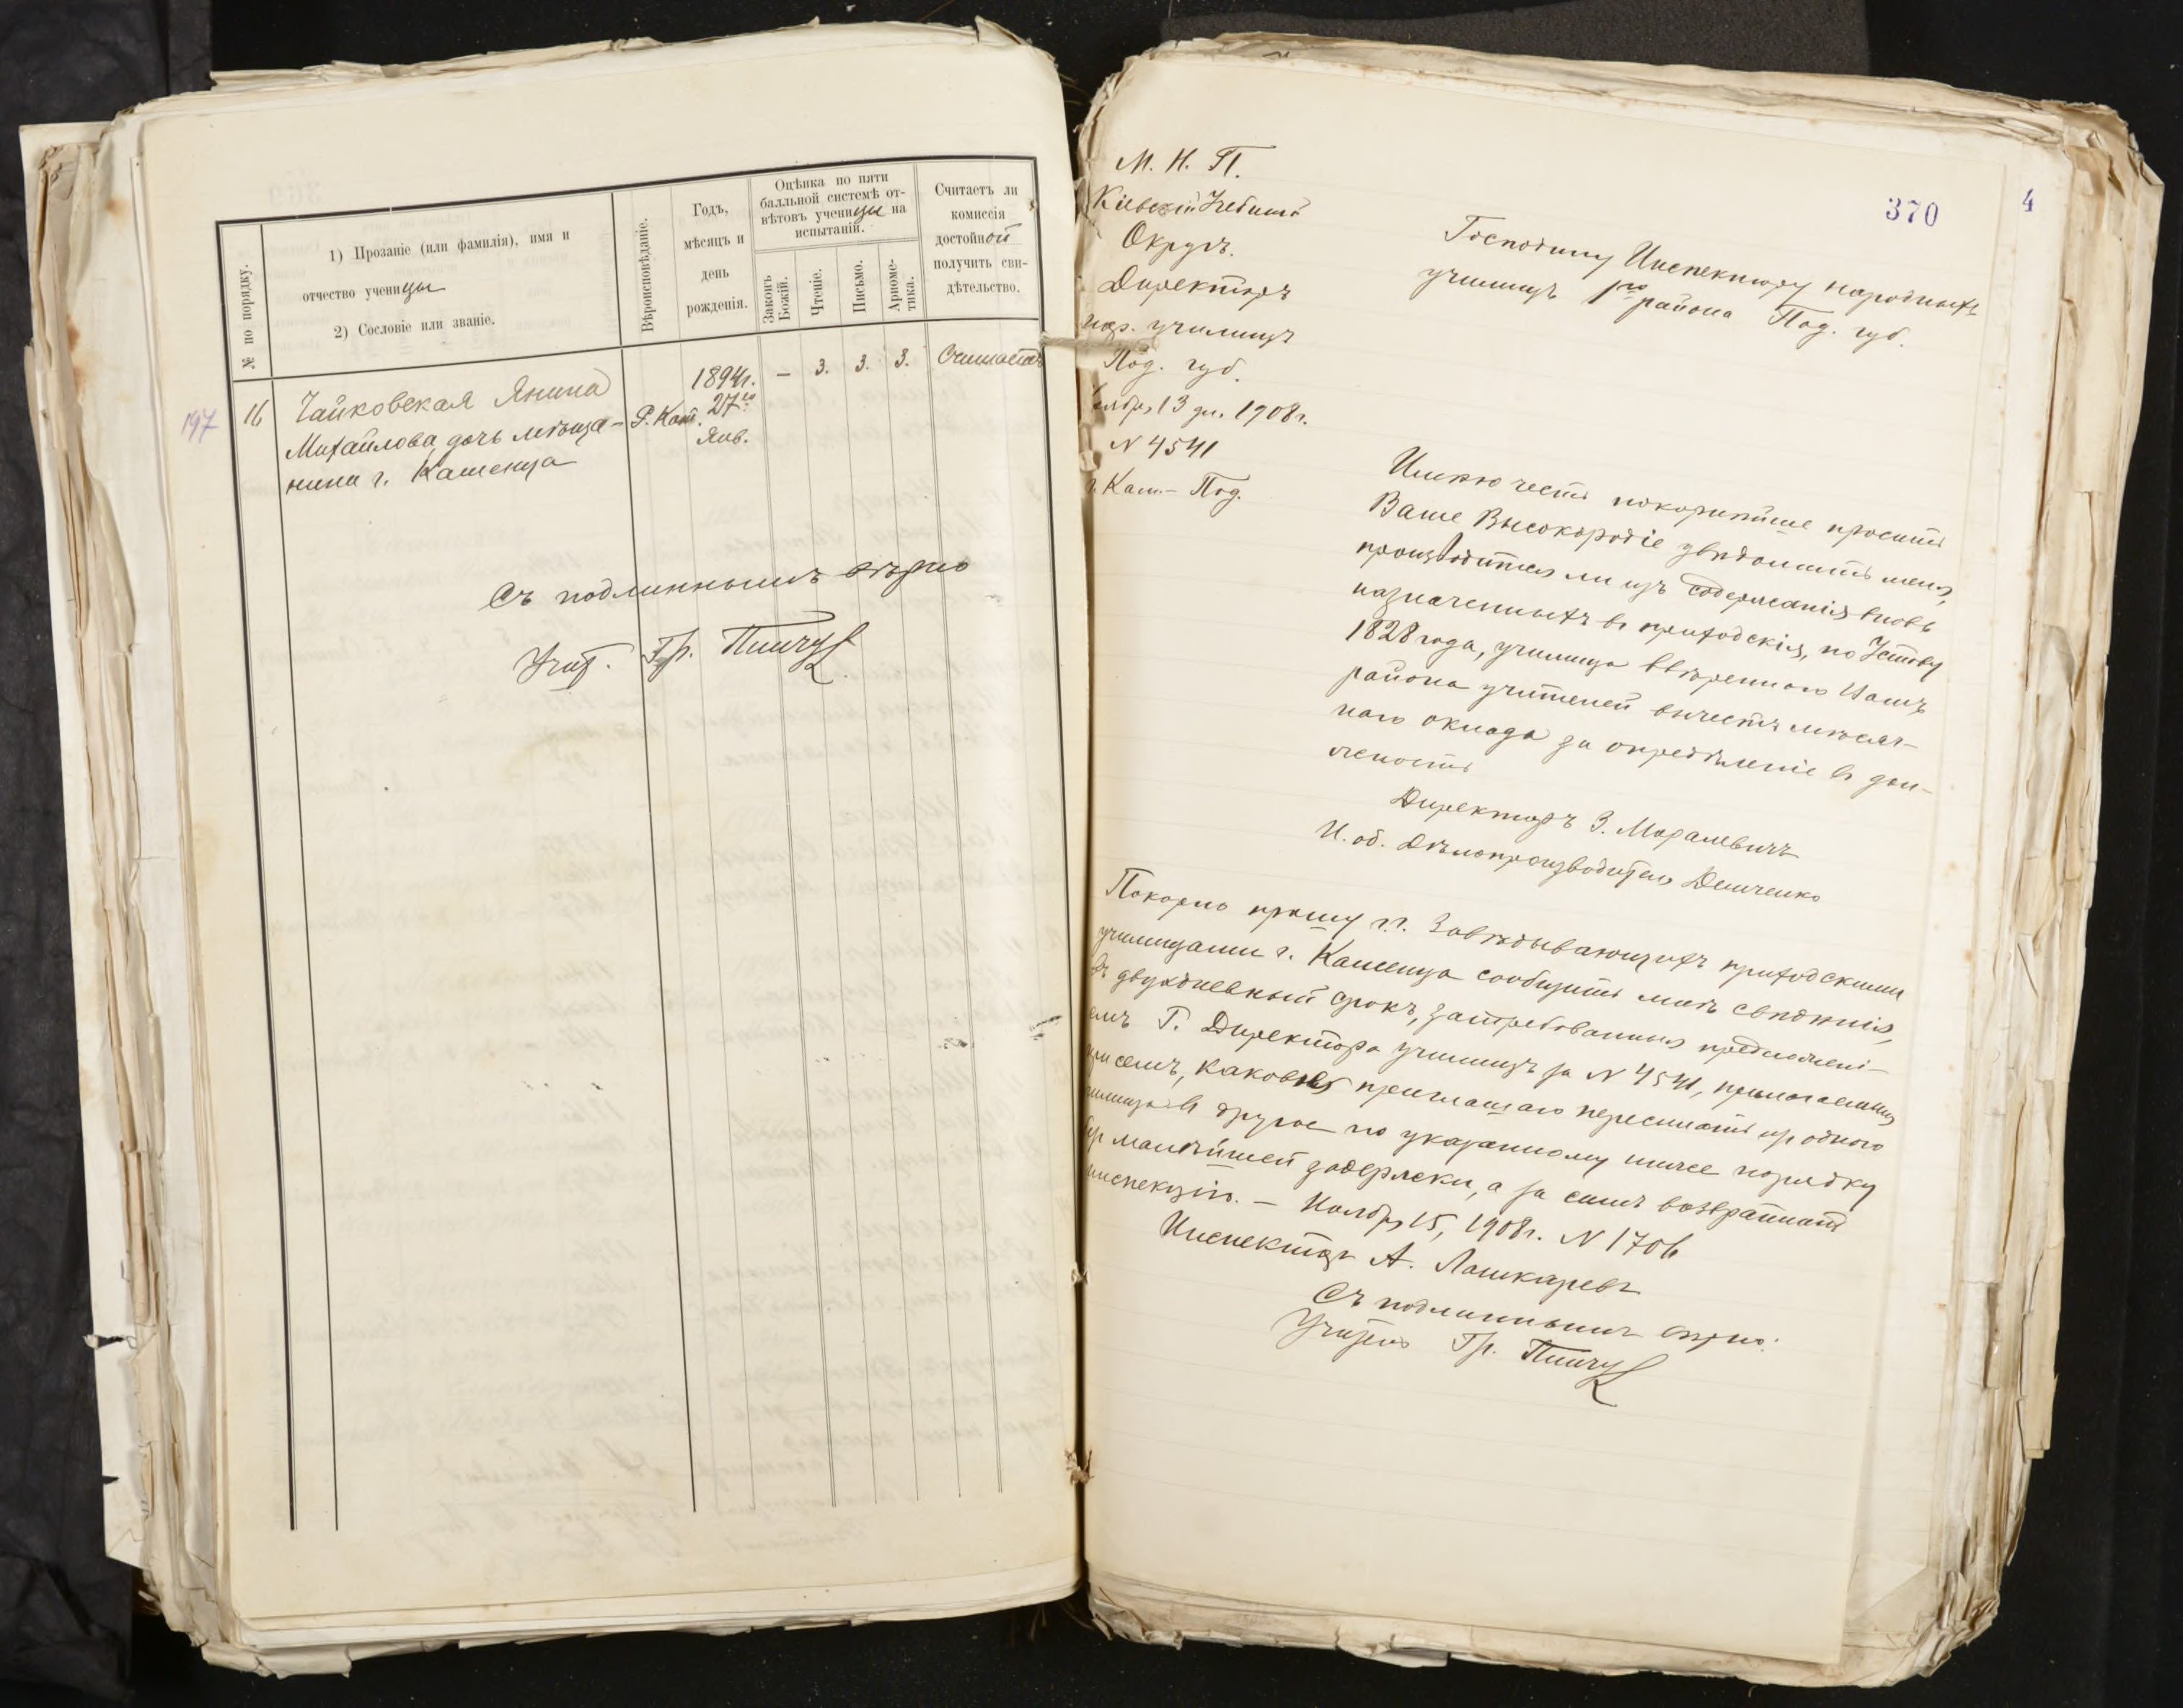 № по порядку.
1) Прозваніе (или фамилія), имя и
отчество ученицы
2) Сословіе или званіе.
Вѣроисповѣданіе.
Годъ,
мѣсяцъ и
день
рожденія.
Оцѣнка по пяти
балльной системѣ от-
вѣтовъ ученицы на
испытаніи.
Законъ
Божій.
Чтеніе.
Письмо.
Ариѳме-
тика.
Считаетъ ли
комиссія
достойной
получить сви-
дѣтельство.
197
16
Чайковская Янина
Михайлова, дочь мѣща-
нина г. Каменца
Р. Кат.
1894 г.
27го
Янв.
— 3. 3. 3.
Считаетъ
Съ подлиннымъ вѣрно
Учит. Гр. Пинчук
370
4
М. Н. П.
Кіевскій Учебный
Округъ.
Директоръ
нар. училищъ
Под. губ.
Ноября 13 дн. 1908 г.
N 4541
г. Кам.-Под.
Господину Инспектору народныхъ
училищъ 1го района Под. губ.
Имѣю честь покорнѣйше просить
Ваше Высокородіе увѣдомить меня,
производится ли изъ содержанія вновь
назначенныхъ въ приходскія, по Уставу
1828 года, училища ввѣреннаго Вамъ
района учителей вычетъ мѣсяч-
наго оклада за опредѣленіе въ дол-
жность
Директоръ З. Маралевичъ
И. об. Дѣлопроизводителя Демченко
Покорно прошу г.г. Завѣдывающихъ приходскими
училищами г. Каменца сообщить мнѣ свѣдѣнія,
въ двухдневный срокъ, затребованныя предложені-
емъ Г. Директора училищъ за N 4541, прилагаемымъ
при семъ, каковое приглашаю пересылать изъ одного
училища въ другое по указанному ниже порядку
безъ малѣйшей задержки, а за симъ возвратить
инспекціи. — Ноября 15, 1908 г. N 1706
Инспекторъ А. Лашкаревъ
Съ подлиннымъ вѣрно:
Учитель Гр. Пинчук